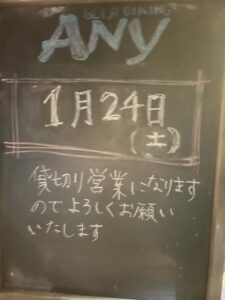 BEER DINING
ANY
1月24日
(土)
貸切り営業になります
のでよろしくお願い
いたします